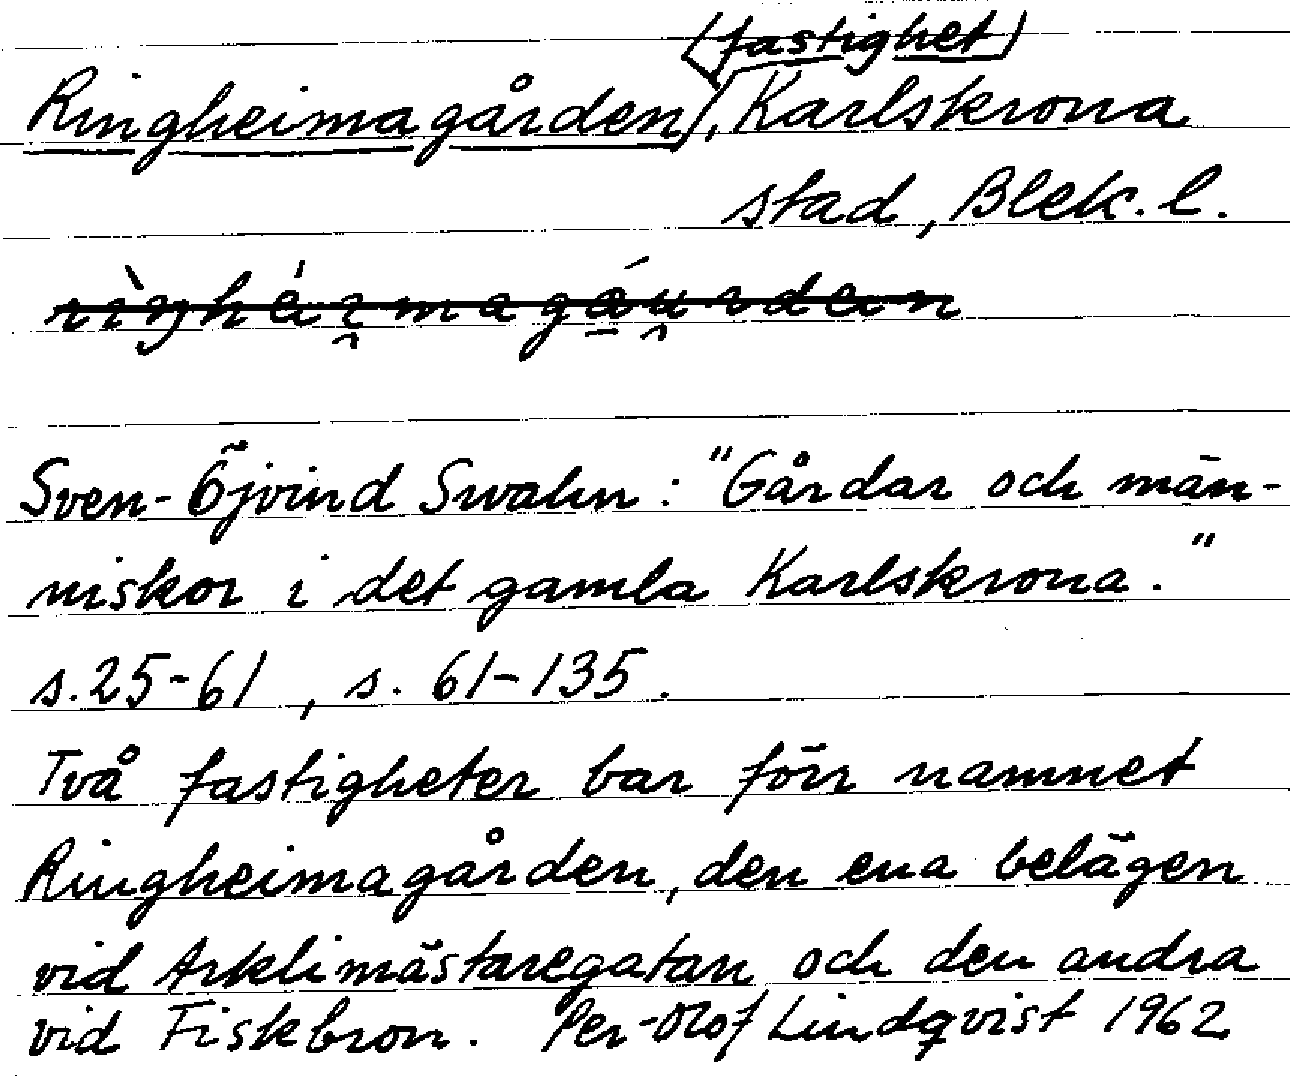 (fastighet)
Ringheimagården, Karlskrona
stad, Blek. l.
Sven-Öjvind Swahn: "Gårdar och män-
niskor i det gamla Karlskrona."
s. 25-61, s. 61-135.
Två fastigheter bar förr namnet
Ringheimagården, den ena belägen
vid Arklimästaregatan och den andra
vid Fiskbron. Per-Olof Lindqvist 1962